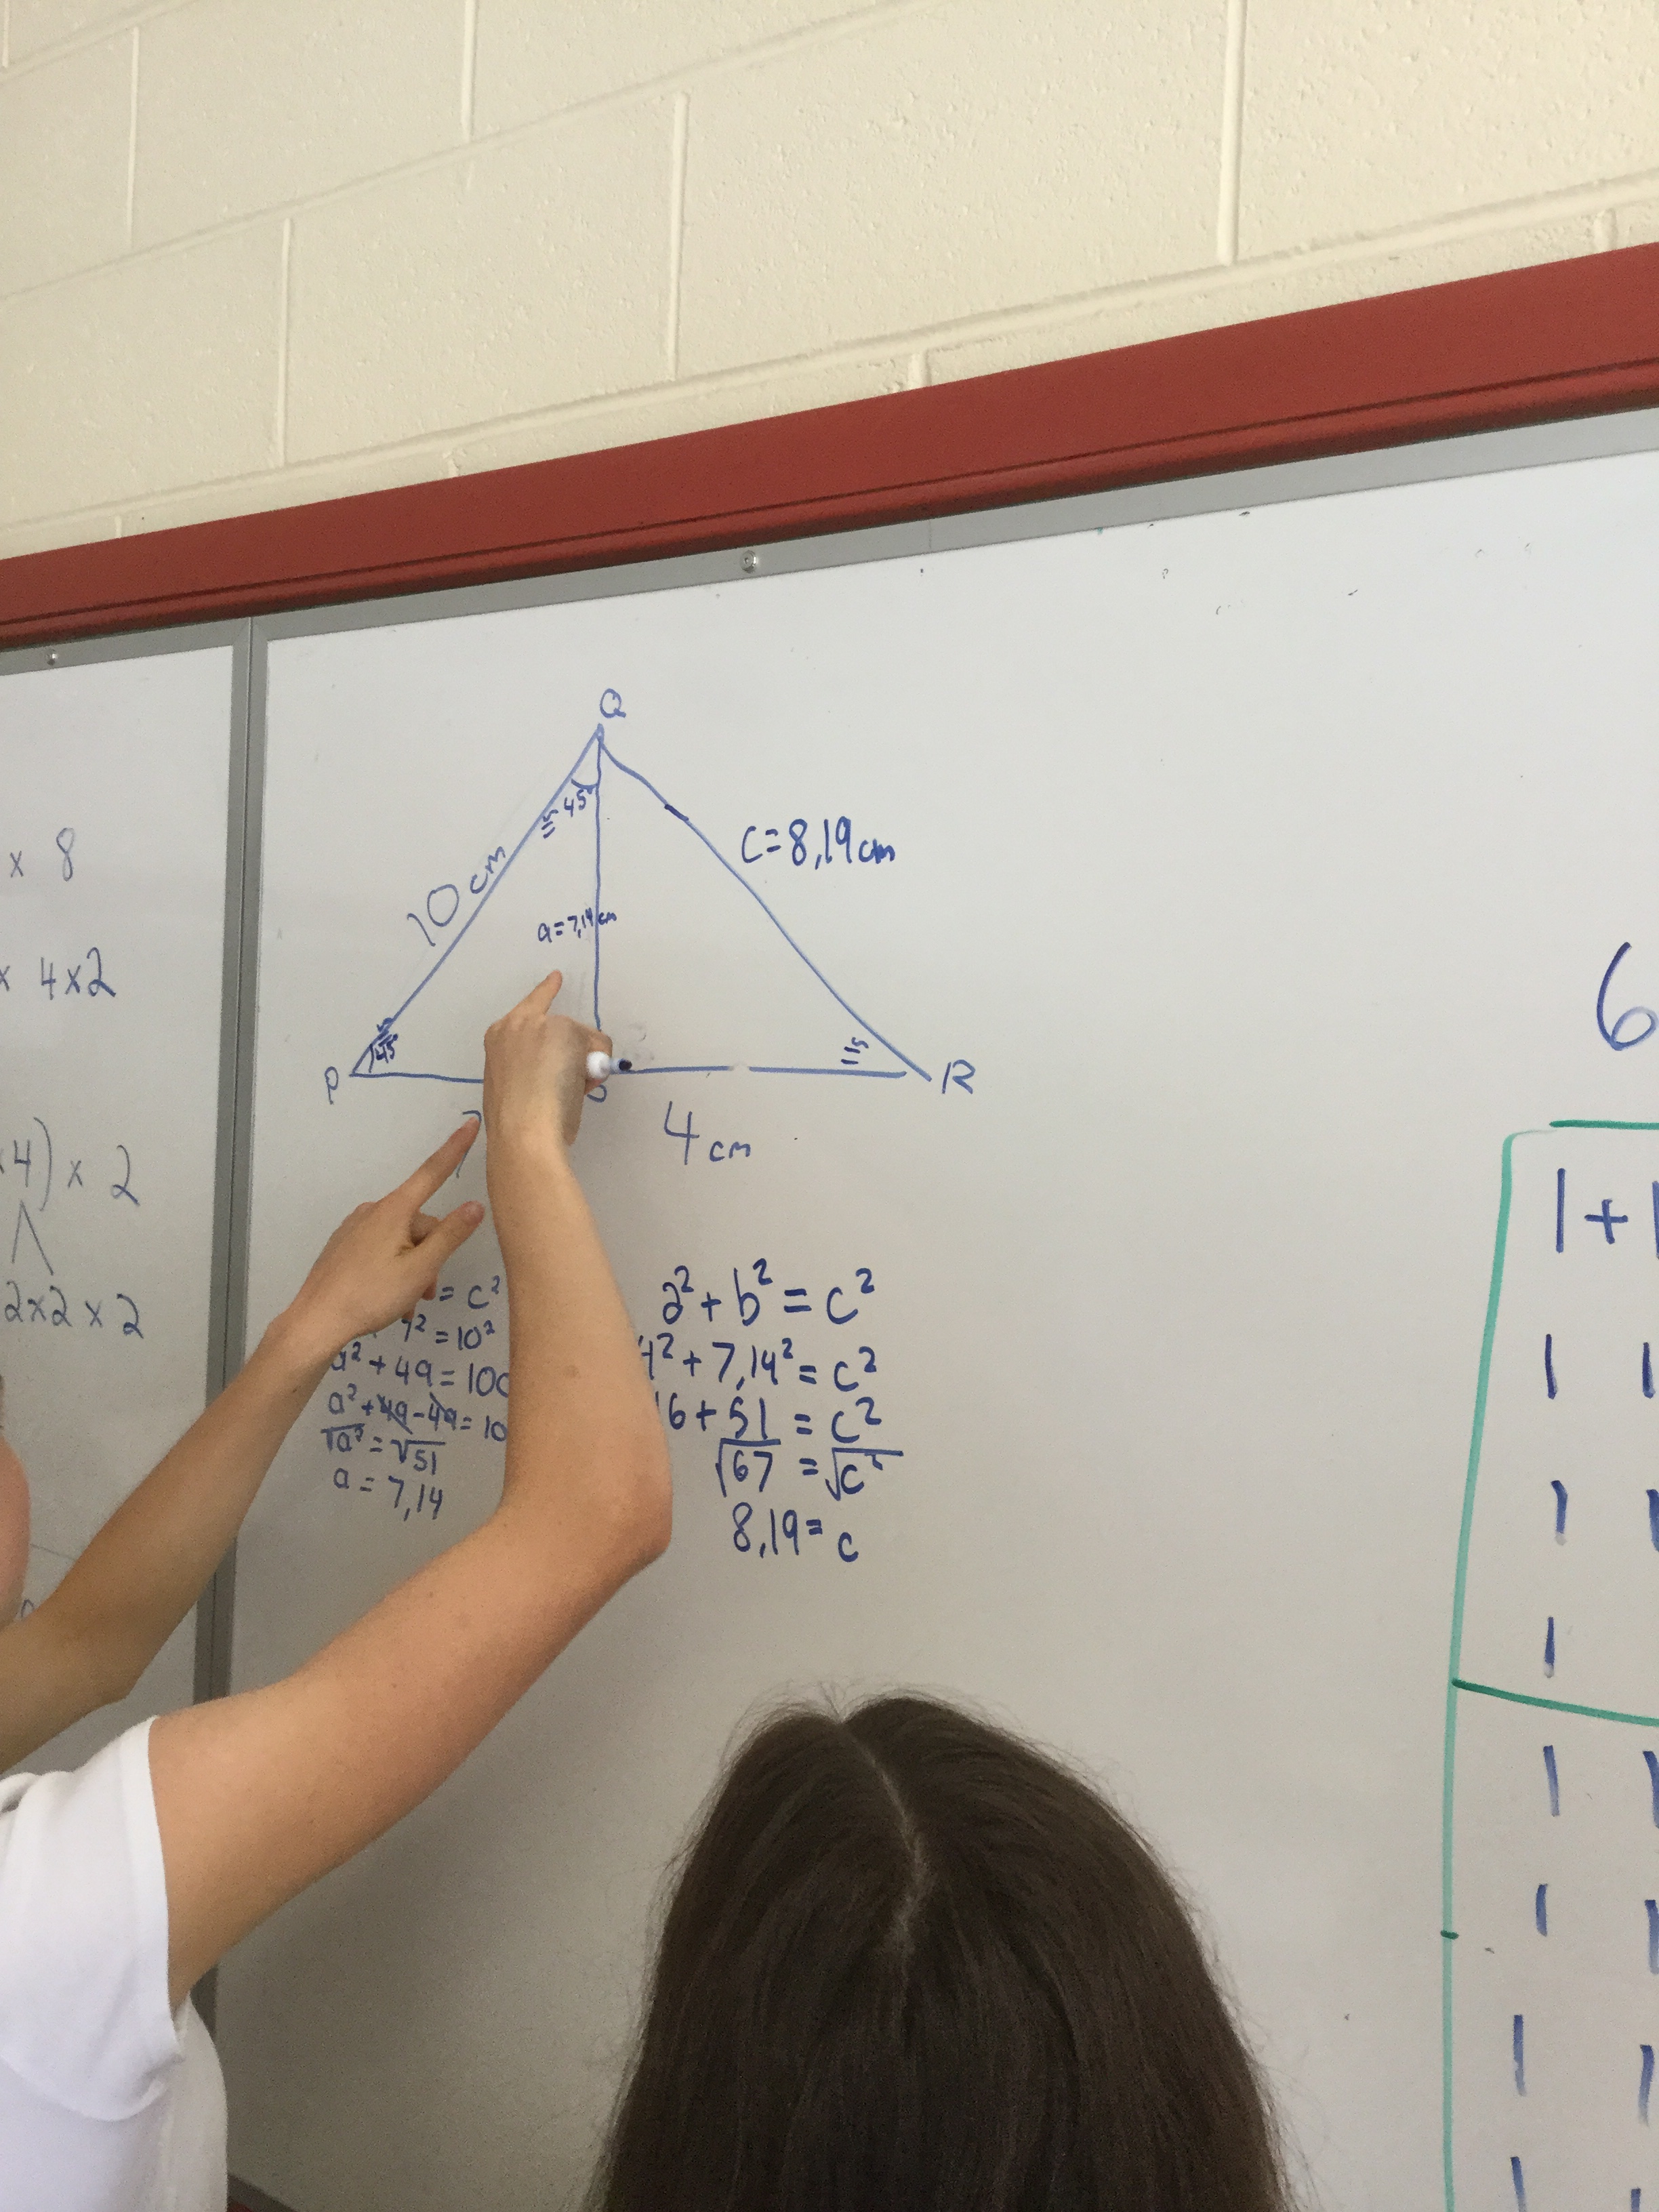 x 8
x 4x2
4) x 2
2x2 x 2
Q
≅ 45°
10 cm
C=8,19cm
a=7,14cm
45°
P
R
4cm
= c²
7² = 10²
a² + 49 = 100
a² + 49 - 49 = 10
√a² = √51
a = 7,14
a² + b² = c²
4² + 7,14² = c²
16 + 51 = c²
√67 = √c²
8,19 = c
6
1 + 1
1 1
1 1
1
1 1
1 1
1 1
1 1